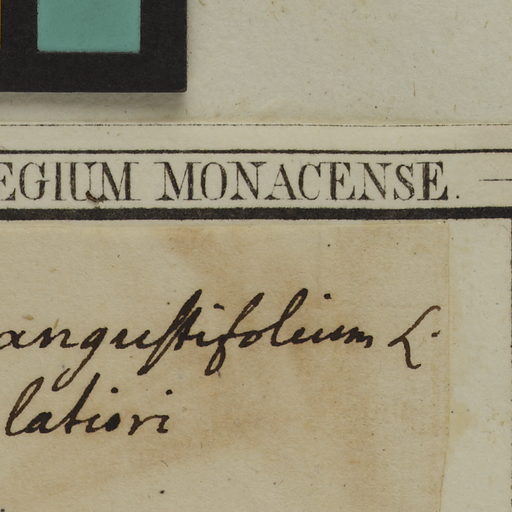 EGIUM MONACENSE.
angustifolium L.
latiori